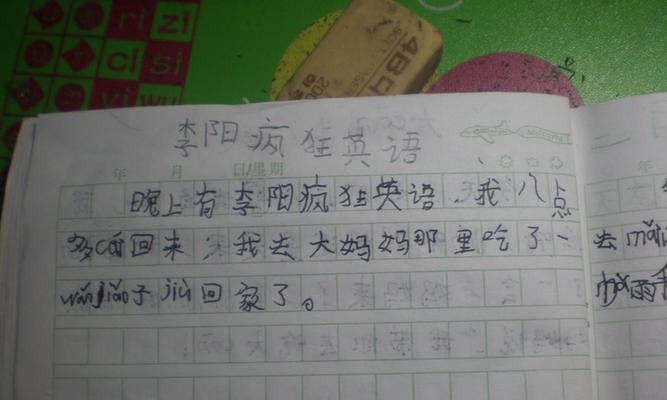 zi
ri
ci
si
yi
wu
4B
SOFT
200
李阳疯狂英语
Welcome
年 月 日/星期
年
晚上有李阳疯狂英语、我八点
多cái回来，我去大妈妈那里吃了一
wǎnjiǎo子jiù回家了。
去mǎi
雨